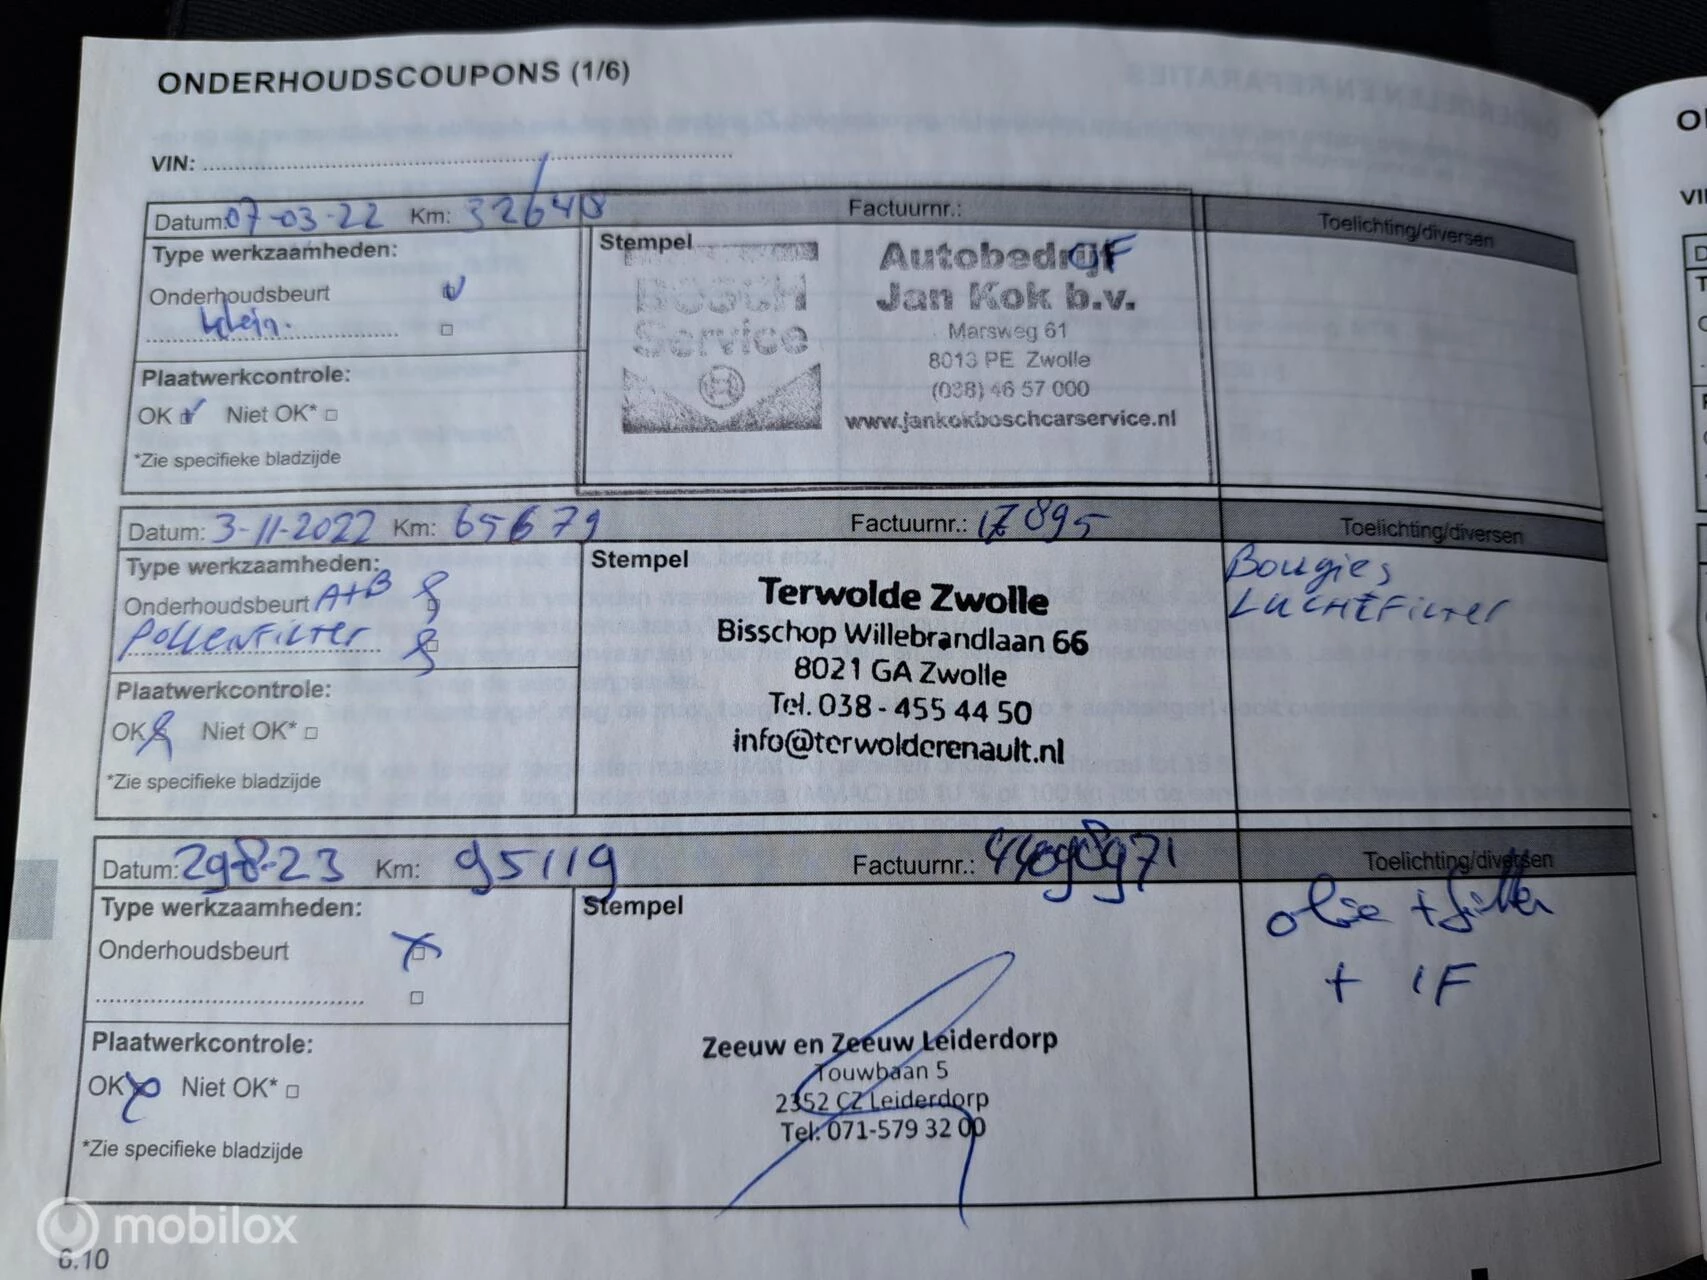 ONDERHOUDSCOUPONS (1/6)
VIN:
Datum: 07-03-22 Km: 32640 Factuurnr.: Toelichting/diversen
Type werkzaamheden:
Onderhoudsbeurt
klein.
Plaatwerkcontrole:
OK Niet OK*
*Zie specifieke bladzijde
Stempel
BOSCH
Service
Autobedrijf
Jan Kok b.v.
Marsweg 61
8013 PE Zwolle
(038) 46 57 000
www.jankokboschcarservice.nl
Datum: 3-11-2022 Km: 65679 Factuurnr.: 17895 Toelichting/diversen
Type werkzaamheden:
Onderhoudsbeurt A+B
POLLENFILTER
Plaatwerkcontrole:
OK Niet OK*
*Zie specifieke bladzijde
Stempel
Terwolde Zwolle
Bisschop Willebrandlaan 66
8021 GA Zwolle
Tel. 038 - 455 44 50
info@terwolderenault.nl
Bougies
LUCHTFILTER
Datum: 29-8-23 Km: 95119 Factuurnr.: 44098971 Toelichting/diversen
Type werkzaamheden:
Onderhoudsbeurt
Plaatwerkcontrole:
OK Niet OK*
*Zie specifieke bladzijde
Stempel
Zeeuw en Zeeuw Leiderdorp
Touwbaan 5
2352 CZ Leiderdorp
Tel: 071-579 32 00
olie + filter
+ IF
6.10
mobilox